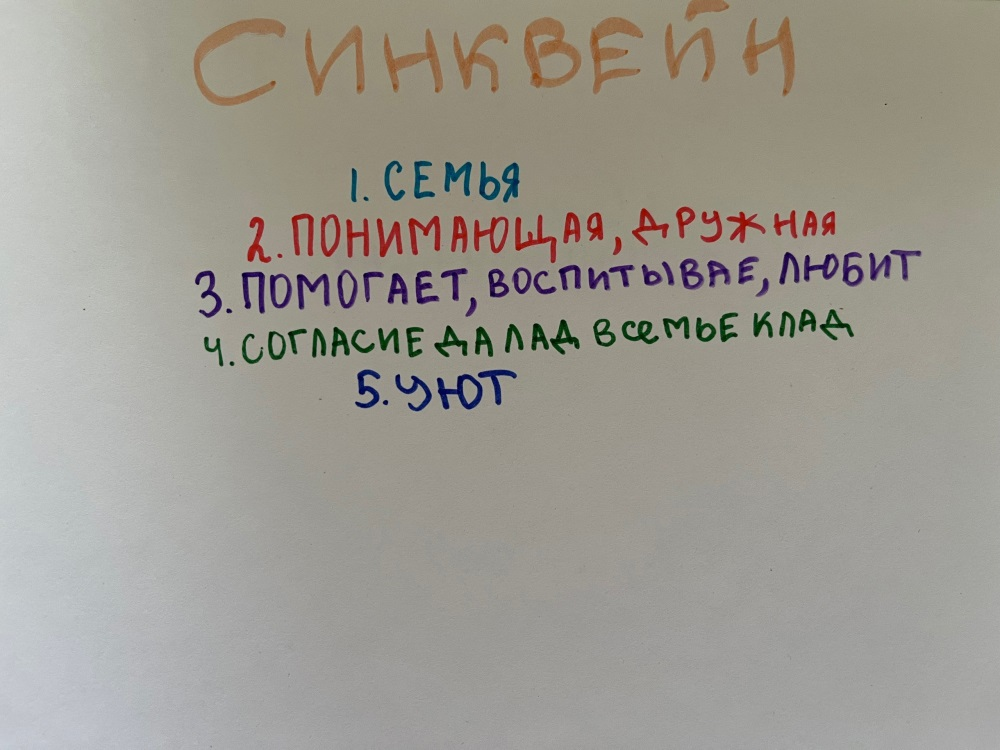 СИНКВЕЙН
1. СЕМЬЯ
2. ПОНИМАЮЩАЯ, ДРУЖНАЯ
3. ПОМОГАЕТ, ВОСПИТЫВАЕ, ЛЮБИТ
4. СОГЛАСИЕ ДА ЛАД В СЕМЬЕ КЛАД
5. УЮТ